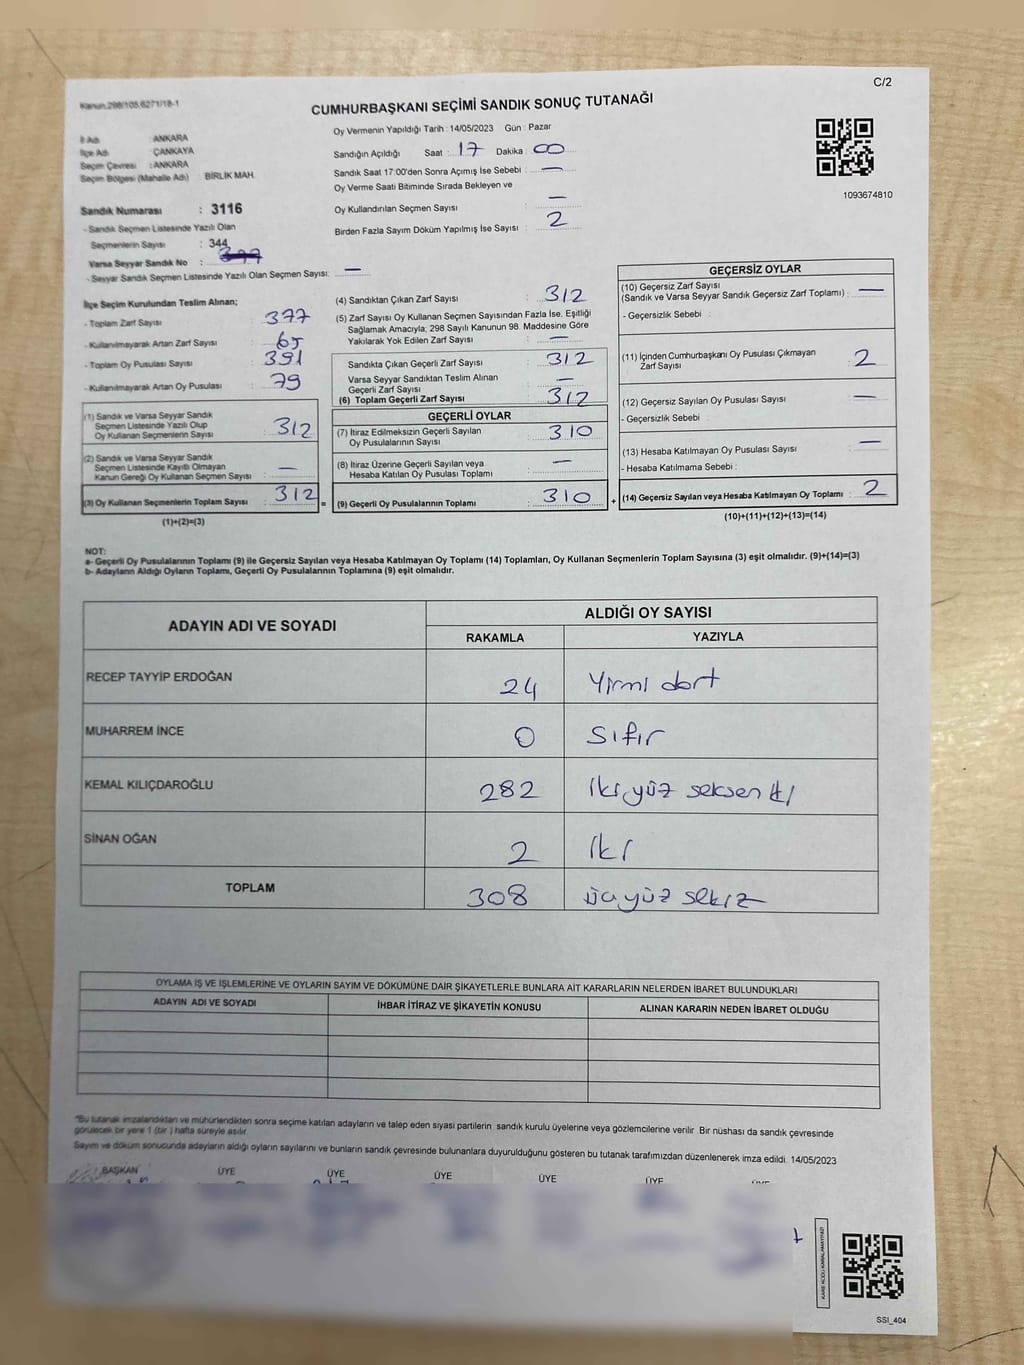 C/2
Kanun.298/105,6271/18-1
CUMHURBAŞKANI SEÇİMİ SANDIK SONUÇ TUTANAĞI
İl Adı : ANKARA
İlçe Adı : ÇANKAYA
Seçim Çevresi : ANKARA
Seçim Bölgesi (Mahalle Adı) : BİRLİK MAH.
Oy Vermenin Yapıldığı Tarih : 14/05/2023 Gün : Pazar
Sandığın Açıldığı Saat : 17 Dakika : 00
Sandık Saat 17:00'den Sonra Açımış İse Sebebi : —
Oy Verme Saati Bitiminde Sırada Bekleyen ve
Oy Kullandırılan Seçmen Sayısı : —
Birden Fazla Sayım Döküm Yapılmış İse Sayısı : 2
1093674810
Sandık Numarası : 3116
- Sandık Seçmen Listesinde Yazılı Olan
Seçmenlerin Sayısı : 344
Varsa Seyyar Sandık No :
- Seyyar Sandık Seçmen Listesinde Yazılı Olan Seçmen Sayısı: —
İlçe Seçim Kurulundan Teslim Alınan;
- Toplam Zarf Sayısı : 377
- Kullanılmayarak Artan Zarf Sayısı : 65
- Toplam Oy Pusulası Sayısı : 391
- Kullanılmayarak Artan Oy Pusulası : 79
(1) Sandık ve Varsa Seyyar Sandık
Seçmen Listesinde Yazılı Olup
Oy Kullanan Seçmenlerin Sayısı : 312
(2) Sandık ve Varsa Seyyar Sandık
Seçmen Listesinde Kayıtlı Olmayan
Kanun Gereği Oy Kullanan Seçmen Sayısı : —
(3) Oy Kullanan Seçmenlerin Toplam Sayısı : 312 =
(1)+(2)=(3)
(4) Sandıktan Çıkan Zarf Sayısı : 312
(5) Zarf Sayısı Oy Kullanan Seçmen Sayısından Fazla İse, Eşitliği
Sağlamak Amacıyla, 298 Sayılı Kanunun 98. Maddesine Göre
Yakılarak Yok Edilen Zarf Sayısı : —
Sandıkta Çıkan Geçerli Zarf Sayısı : 312
Varsa Seyyar Sandıktan Teslim Alınan
Geçerli Zarf Sayısı : —
(6) Toplam Geçerli Zarf Sayısı : 312
GEÇERLİ OYLAR
(7) İtiraz Edilmeksizin Geçerli Sayılan
Oy Pusulalarının Sayısı : 310
(8) İtiraz Üzerine Geçerli Sayılan veya
Hesaba Katılan Oy Pusulası Toplamı : —
(9) Geçerli Oy Pusulalarının Toplamı : 310 +
GEÇERSİZ OYLAR
(10) Geçersiz Zarf Sayısı
(Sandık ve Varsa Seyyar Sandık Geçersiz Zarf Toplamı) : —
- Geçersizlik Sebebi :
(11) İçinden Cumhurbaşkanı Oy Pusulası Çıkmayan
Zarf Sayısı : 2
(12) Geçersiz Sayılan Oy Pusulası Sayısı : —
- Geçersizlik Sebebi :
(13) Hesaba Katılmayan Oy Pusulası Sayısı : —
- Hesaba Katılmama Sebebi :
(14) Geçersiz Sayılan veya Hesaba Katılmayan Oy Toplamı : 2
(10)+(11)+(12)+(13)=(14)
NOT:
a- Geçerli Oy Pusulalarının Toplamı (9) ile Geçersiz Sayılan veya Hesaba Katılmayan Oy Toplamı (14) Toplamları, Oy Kullanan Seçmenlerin Toplam Sayısına (3) eşit olmalıdır. (9)+(14)=(3)
b- Adayların Aldığı Oyların Toplamı, Geçerli Oy Pusulalarının Toplamına (9) eşit olmalıdır.
ADAYIN ADI VE SOYADI
ALDIĞI OY SAYISI
RAKAMLA YAZIYLA
RECEP TAYYİP ERDOĞAN 24 Yirmi dört
MUHARREM İNCE 0 sıfır
KEMAL KILIÇDAROĞLU 282 iki yüz seksen iki
SİNAN OĞAN 2 iki
TOPLAM 308 üçyüz sekiz
OYLAMA İŞ VE İŞLEMLERİNE VE OYLARIN SAYIM VE DÖKÜMÜNE DAİR ŞİKAYETLERLE BUNLARA AİT KARARLARIN NELERDEN İBARET BULUNDUKLARI
ADAYIN ADI VE SOYADI İHBAR İTİRAZ VE ŞİKAYETİN KONUSU ALINAN KARARIN NEDEN İBARET OLDUĞU
*Bu tutanak imzalandıktan ve mühürlendikten sonra seçime katılan adayların ve talep eden siyasi partilerin sandık kurulu üyelerine veya gözlemcilerine verilir. Bir nüshası da sandık çevresinde
görülecek bir yere 1 (bir ) hafta süreyle asılır.
Sayım ve döküm sonucunda adayların aldığı oyların sayılarını ve bunların sandık çevresinde bulunanlara duyurulduğunu gösteren bu tutanak tarafımızdan düzenlenerek imza edildi. 14/05/2023
BAŞKAN ÜYE ÜYE ÜYE ÜYE ÜYE
SSI_404